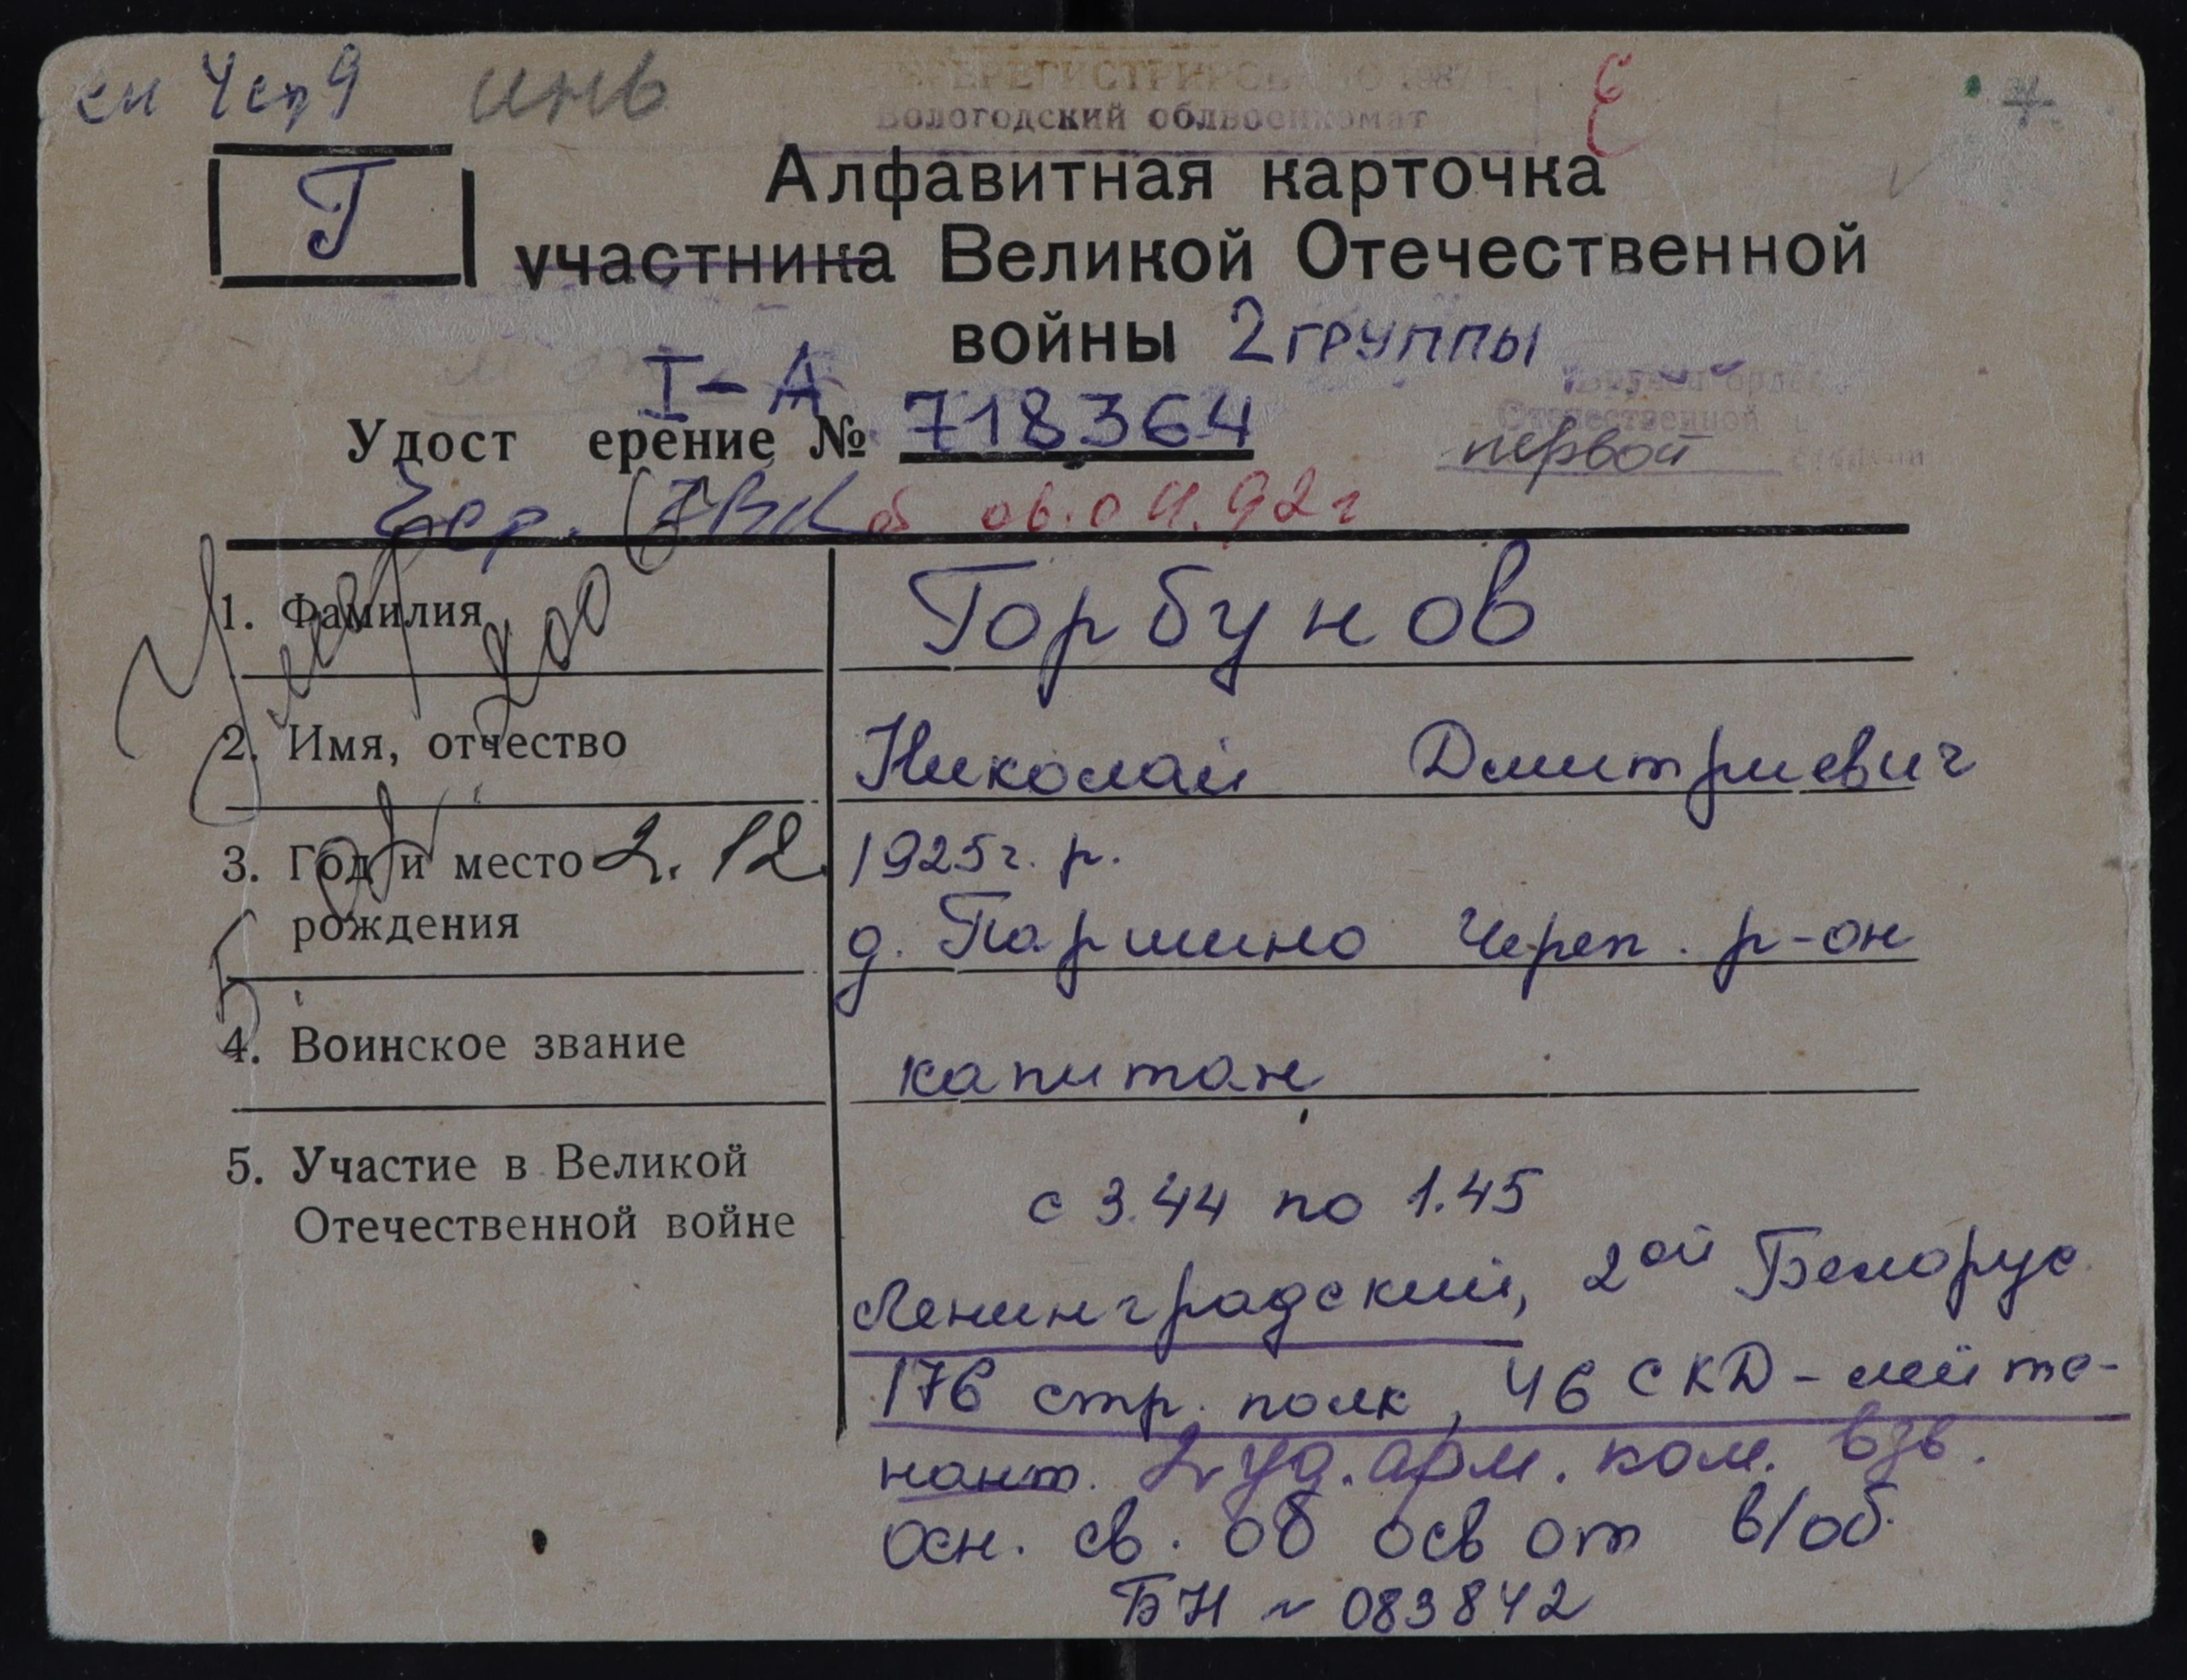 инв
Вологодский облвоенкомат
Г
Алфавитная карточка
участника Великой Отечественной
войны 2 группы
I-А
Удост ерение № 718364
Отечественной
первой
Чер. ГВК с 06.04.92 г
1. Фамилия Горбунов
2. Имя, отчество Николай Дмитриевич
3. Год и место 2.12. 1925 г. р.
рождения д. Паршино Череп. р-он
4. Воинское звание капитан
5. Участие в Великой
Отечественной войне
с 3.44 по 1.45
Ленинградский, 2ой Белорус
176 стр. полк, 46 СКД - лейте-
нант. 2 уд. арм. ком. взв.
осн. св. об осв от в/об.
БН ~ 083842